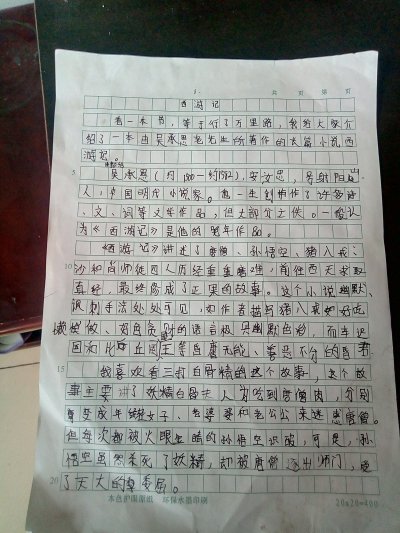 共 页 第 页
西游记
看一本书，等于行了万里路，我给大家介
绍了一本由吴承恩老先生所著作的长篇小说西
游记。
5 吴承恩（约1500一约1582），字汝忠，号射阳山
人，中国明代小说家。他一生创作了许多诗
、文、词等文学作品，但大部分之佚。一般认
为《西游记》是他的晚年作品。
《西游记》讲述了唐僧、孙悟空、猪八戒、
10 沙和尚师徒四人历经重重磨难，前往西天求取
真经，最终修成了正果的故事。这个小说幽默、
讽刺手法处处可见，如作者描写猪八戒如好吃
懒做、的语言极具幽默色彩，而车迟
国和比丘国国王等昏庸无能、善恶不分的昏君
15 我喜欢看三打白骨精的这个故事，这个故
事主要讲了妖精白骨夫人为吃到唐僧肉，分别
变成年轻女子、老婆婆和老公公来迷惑唐僧。
但每次都被火眼金睛的孙悟空识破，可是，孙
悟空虽然杀死了妖精，却被唐僧逐出师门，受
20 了天大的委屈。
本色护眼原纸 环保水墨印刷 20x20=400